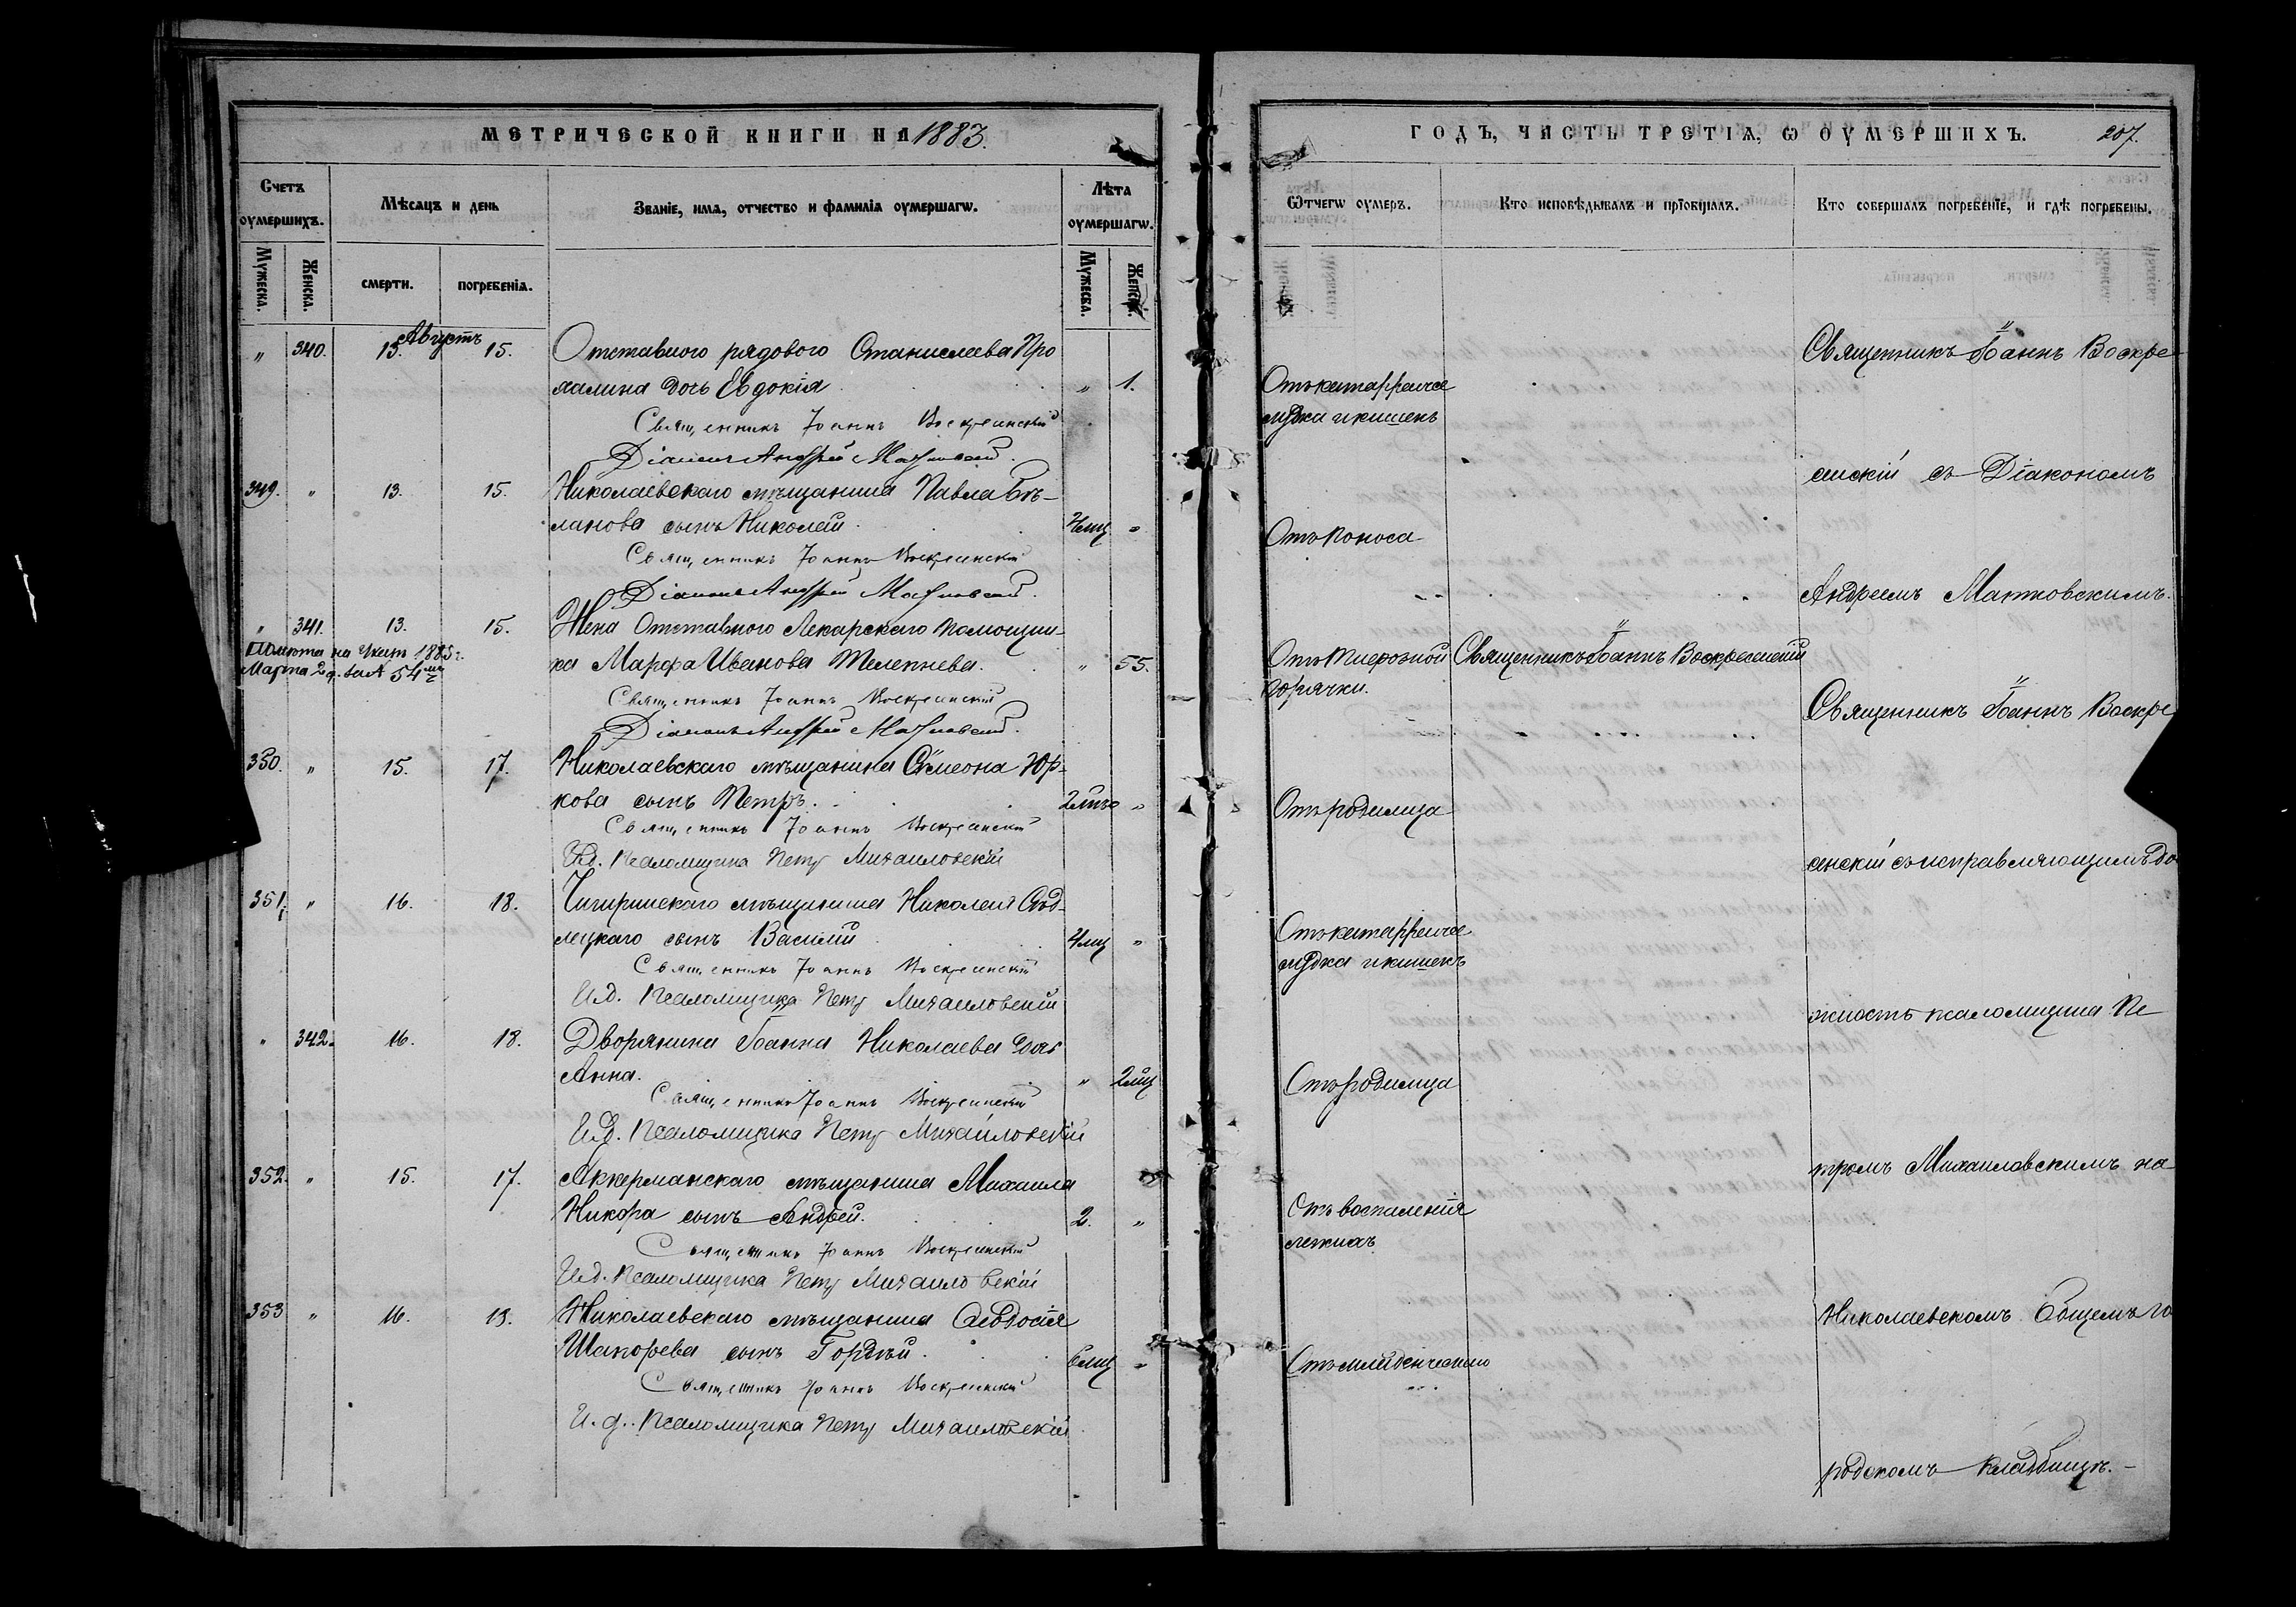 МЕТРИЧЕСКОЙ КНИГИ НА 1883.
Счетъ оумершихъ.
Мѣсяцъ и день
Званіе, имя, отчество и фамилія оумершагѡ.
Лѣта оумершагѡ.
Мужеска.
Женска.
смерти.
погребенія.
Мужеска.
Женска.
Августъ
" 340. 13. 15. Отставного рядового Станислава
дочь Евдокія " 1.
Священникъ Іоаннъ Воскресенскій
Діаконъ Андрей Матковскій.
349. " 13. 15. Николаевскаго мѣщанина Павла Бѣ-
ланова сынъ Николай "
Священникъ Іоаннъ Воскресенскій
Діаконъ Андрей Матковскій.
" 341. 13. 15. Жена Отставного Лекарскаго помощни-
ка Марфа Иванова Телепнева. " 55.
1885 г.
Марта 2 д. за № 54
Священникъ Іоаннъ Воскресенскій
Діаконъ Андрей Матковскій.
350. " 15. 17. Николаевскаго мѣщанина Сѵмеона Юр-
кова сынъ Петръ. "
Священникъ Іоаннъ Воскресенскій
И.д. Псаломщика Петръ Михаиловскій
351. " 16. 18. Чигиринскаго мѣщанина Николая Сѣд-
лецкаго сынъ Василій 4 мц "
Священникъ Іоаннъ Воскресенскій
И.д. Псаломщика Петръ Михаиловскій
" 342. 16. 18. Дворянина Іоанна Николаева дочь
Анна. " 2 мц
Священникъ Іоаннъ Воскресенскій
И.д. Псаломщика Петръ Михаиловскій
352. " 15. 17. Аккерманскаго мѣщанина Михаила
сынъ Андрей. 2. "
Священникъ Іоаннъ Воскресенскій
И.д. Псаломщика Петръ Михаиловскій
353 " 16. 18. Николаевскаго мѣщанина
сынъ Гордѣй. 6 мц "
Священникъ Іоаннъ Воскресенскій
И.д. Псаломщика Петръ Михаиловскій
ГОДЪ, ЧАСТЬ ТРЕТІЯ, Ѡ ОУМЕРШИХЪ. 207.
Ѿтчегѡ оумеръ.
Кто исповѣдывалъ и пріобщалъ.
Кто совершалъ погребеніе, и гдѣ погребены.
Священникъ Іоаннъ Воскре-
Отъ катарра
и кишекъ
сенскій съ Діакономъ
Отъ Поноса
Андреемъ Матковскимъ.
Отъ Тифозной Священникъ Іоаннъ Воскресенскій
горячки.
Священникъ Іоаннъ Воскре
Отъ родимца
сенскій съ исправляющимъ до
Отъ катарра
и кишекъ
жность псаломщика Пе
Отъ родимца
тромъ Михаиловскимъ на
Отъ воспаленія
легкихъ
Николаевскомъ Общемъ го
Отъ младенческаго
родскомъ кладбищѣ.